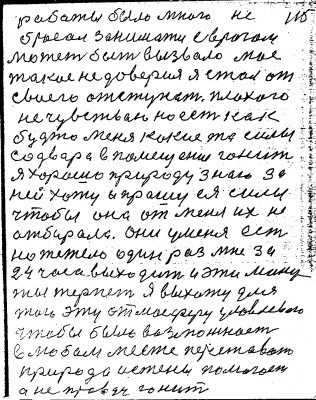 работы было много не 115
бросал занимати с врагом
может быт вызвало мое
такое недоверия я стал от
своего отступат. плохого
не чувствы но ест как
будто меня какие то силы
с двара в помещение гонит
я хорошо природу знаю за
ней хожу и прашу ея силы
чтобы она от меня их не
отбирала. они у меня ест
но тежело один раз мне за
24 часа выходит и эти мину
ты терпет я выхожу для
того эту отмосферу
чтобы было возможност
в любом месте перестават
природа истены помогает
а не правду гонит